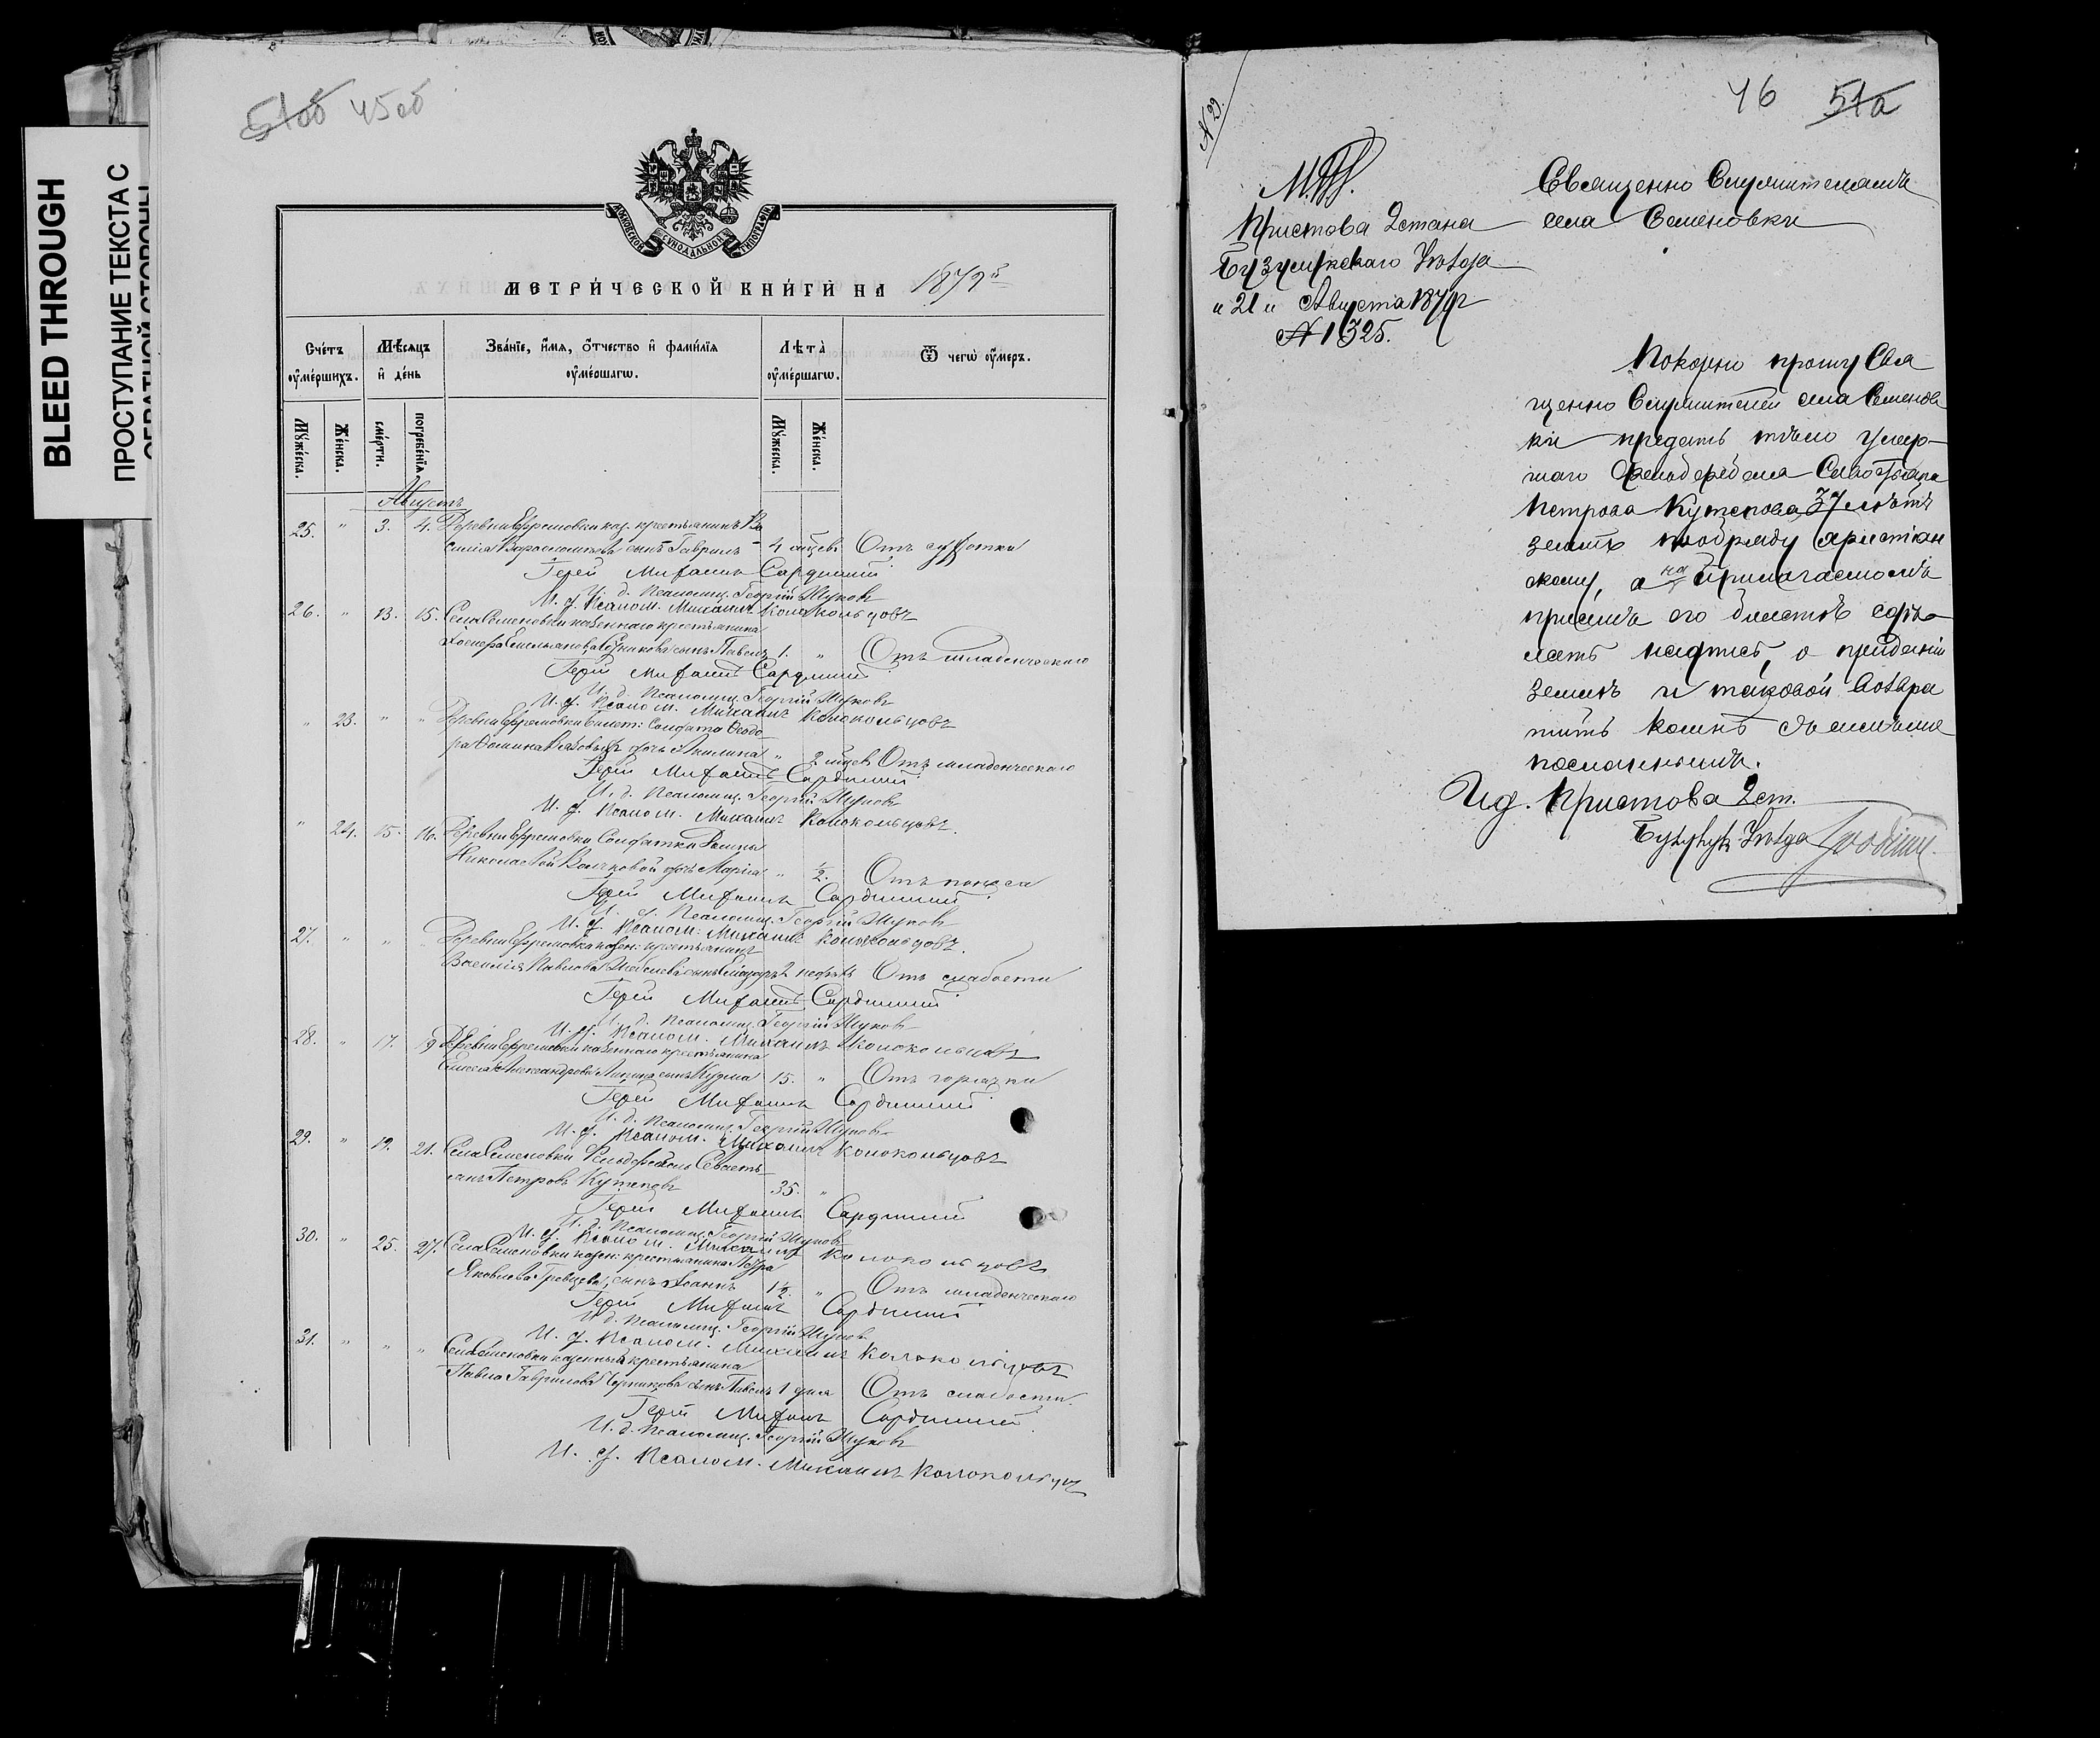 BLEED THROUGH
ПРОСТУПАНИЕ ТЕКСТА С
ОБРАТНОЙ СТОРОНЫ
51об 45об
МОСКОВСКОЙ СУНОДАЛЬНОЙ ТИПОГРАФІИ
МЕТРИЧЕСКОЙ КНИГИ НА 1879й
Счетъ умершихъ.
Мѣсяцъ и день
Званіе, имя, отчество и фамилія умершагѡ.
Лѣта умершагѡ.
Ѿ чегѡ умеръ.
Мужеска.
Женска.
смерти.
погребенія.
Мужеска.
Женска.
Августъ
25. " 3. 4. Деревни Ефремовки каз. крестьянина Ва
силія Варѳоломѣева сынъ Гавріилъ 4 мѣсъ Отъ сухотки
Іерей Митрофанъ Сардинскій
И. д. Псаломщ. Георгій Жуковъ
И. д. Псалом. Михаилъ Колокольцовъ
26. " 13. 15. Села Семеновки казеннаго крестьянина
Іосифа Емельянова сынъ Павелъ 1. " Отъ младенческаго
Іерей Митрофанъ Сардинскій
И. д. Псаломщ. Георгій Жуковъ
И. д. Псалом. Михаилъ Колокольцовъ
" 23. " " Деревни Ефремовки билет: Солдата Ѳеодо
ра дочь Акилина " Отъ младенческаго
Іерей Митрофанъ Сардинскій
И. д. Псаломщ. Георгій Жуковъ
И. д. Псалом. Михаилъ Колокольцовъ.
" 24. 15. 16. Деревни Ефремовки Солдатки
Николаевой Волчковой дочь Марія " ½. Отъ поноса
Іерей Митрофанъ Сардинскій
И. д. Псаломщ. Георгій Жуковъ
И. д. Псалом. Михаилъ Колокольцовъ.
27. " " Деревни Ефремовки казен: крестьянина
Василія Павлова сынъ 2 недѣль Отъ слабости
Іерей Митрофанъ Сардинскій
И. д. Псаломщ. Георгій Жуковъ
И. д. Псалом. Михаилъ Колокольцовъ
28. " 17. 19 Деревни Ефремовки казеннаго крестьянина
Александрова сынъ Кузма 15. " Отъ горячки
Іерей Митрофанъ Сардинскій
И. д. Псаломщ. Георгій Жуковъ
И. д. Псалом. Михаилъ Колокольцовъ
29. " 19. 21. Села Семеновки Фельдфебель Севасть
янъ Петровъ Кутеповъ 35. "
Іерей Митрофанъ Сардинскій
И. д. Псаломщ. Георгій Жуковъ
И. д. Псалом. Михаилъ Колокольцовъ
30. " 25. 27. Села Семеновки казен: крестьянина Петра
Яковлева сынъ Іоаннъ 1½. " Отъ младенческаго
Іерей Митрофанъ Сардинскій
И. д. Псаломщ. Георгій Жуковъ
И. д. Псалом. Михаилъ Колокольцовъ
31. " " " Села Семеновки казеннаго крестьянина
Павла Гаврилова сынъ Павелъ 1 дня Отъ слабости.
Іерей Митрофанъ Сардинскій
И. д. Псаломщ. Георгій Жуковъ
И. д. Псалом. Михаилъ Колокольцовъ
N 29.
46 51а
М.В.Д.
Пристава 2 стана
Бузулукскаго Уѣзда
" 21 " Августа 1879 г
N 1325.
Священно Служителямъ
села Семеновки
Покорно прошу Свя
щенно Служителей села Семенов
ки предать тѣло умер-
шаго Фельдфебеля Севостьяна
Петрова Кутепова 37 лѣтъ
землѣ по обряду христіан
скому, а на прилагаемомъ
при семъ его билетѣ сдѣ
лать надпись, о преданіи
землѣ и таковой возвра
тить ко мнѣ съ симъ же
посланнымъ.
И д. Пристава 2 ст.
Бузулук. Уѣзда